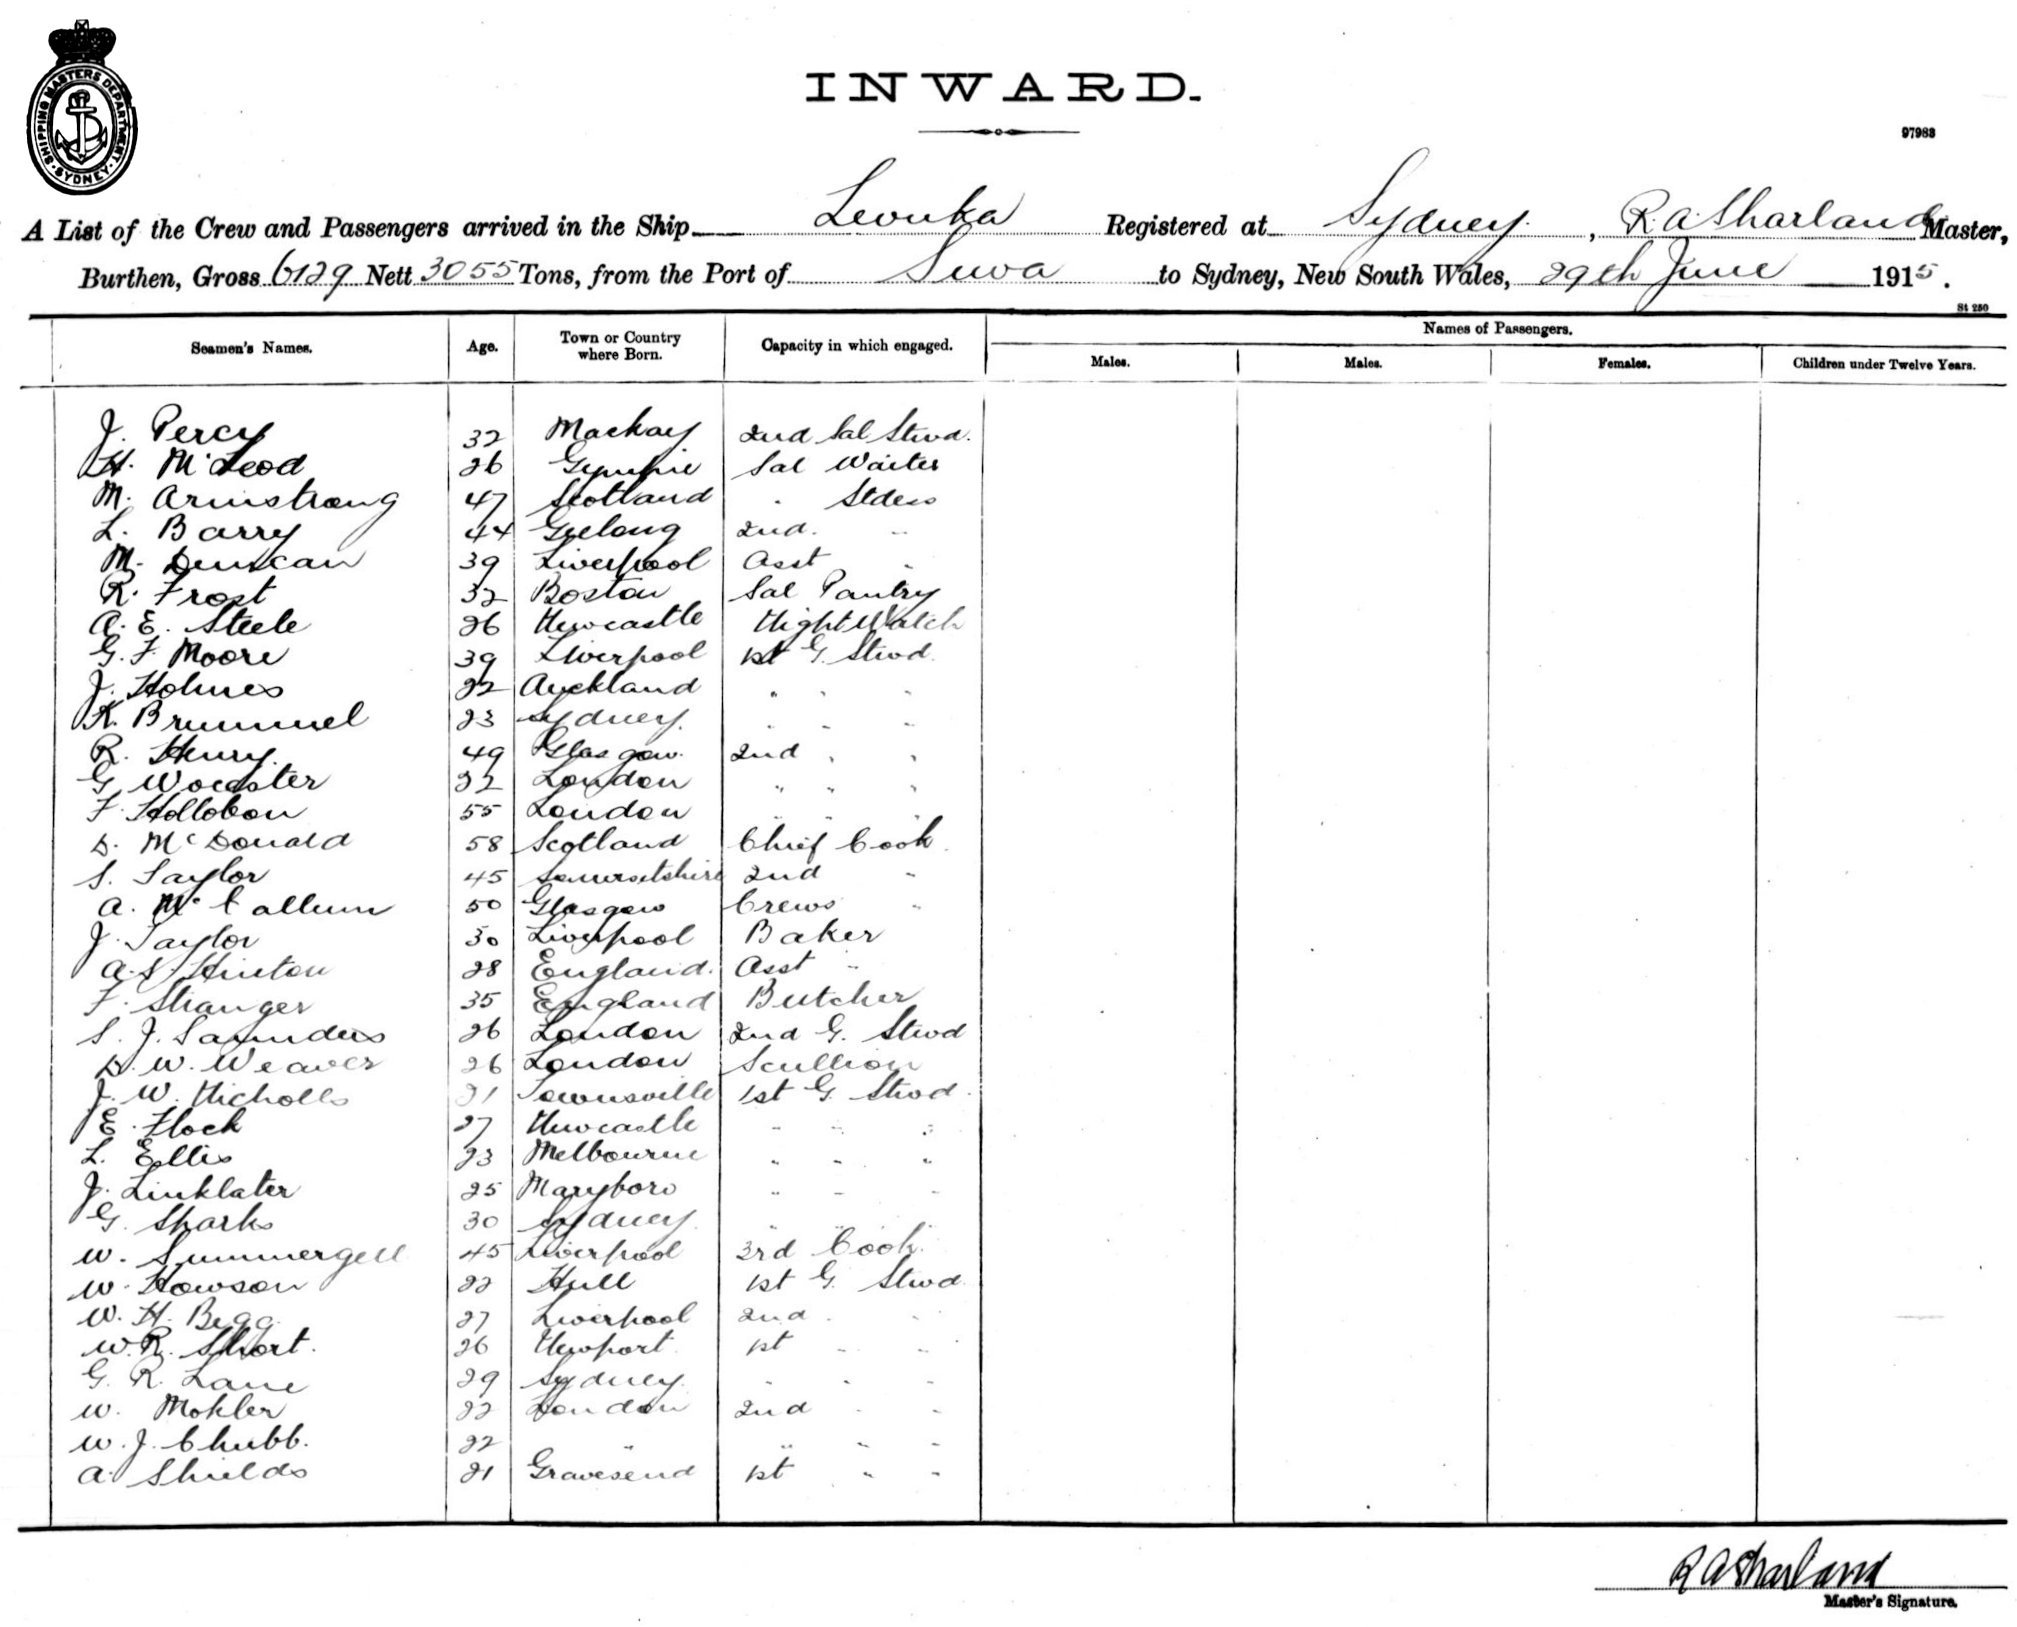 SHIPPING MASTERS DEPARTMENT · SYDNEY ·
INWARD.
97983
A List of the Crew and Passengers arrived in the Ship Levuka Registered at Sydney, R. A. Sharland Master,
Burthen, Gross 6129 Nett 3055 Tons, from the Port of Suva to Sydney, New South Wales, 29th June 1915.
St 250
Seamen's Names. Age. Town or Country where Born. Capacity in which engaged. Names of Passengers.
Males. Males. Females. Children under Twelve Years.
J. Percy 32 Mackay 2nd Sal Stwd.
H. McLeod 26 Gympie Sal Waiter
M. Armstrong 47 Scotland " Stdess
L. Barry 44 Geelong 2nd. "
M. Duncan 39 Liverpool Asst "
R. Frost 32 Boston Sal Pantry
A. E. Steele 26 Newcastle Night Watch
G. F. Moore 39 Liverpool 1st G. Stwd.
J. Holmes 22 Auckland " " "
K. Brummel 23 Sydney. " " "
R. Henry. 49 Glasgow. 2nd " "
G. Wocester 22 London " " "
F. Hollobon 55 London " " "
D. McDonald 58 Scotland Chief Cook.
S. Taylor 45 Somersetshire 2nd "
A. McCallum 50 Glasgow Crews "
J. Taylor 30 Liverpool Baker
A. S. Hinton 28 England. Asst "
F. Stranger 35 England Butcher
S. J. Saunders 26 London 2nd G. Stwd
D. W. Weaver 26 London Scullion
J. W. Nicholls 21 Townsville 1st G. Stwd.
E. Flock 27 Newcastle " " "
L. Ellis 23 Melbourne " " "
J. Linklater 25 Maryboro " " "
G. Sparks 30 Sydney. " " "
W. Summergell 45 Liverpool 3rd Cook.
W. Howson 22 Hull 1st G. Stwd
W. H. Begg 27 Liverpool 2nd " "
W. R. Short. 26 Newport 1st " "
G. R. Lane 29 Sydney. " " "
W. Mokler 22 London 2nd " "
W. J. Chubb. 22 " " " "
A. Shields 21 Gravesend 1st " "
R A Sharland
Master's Signature.